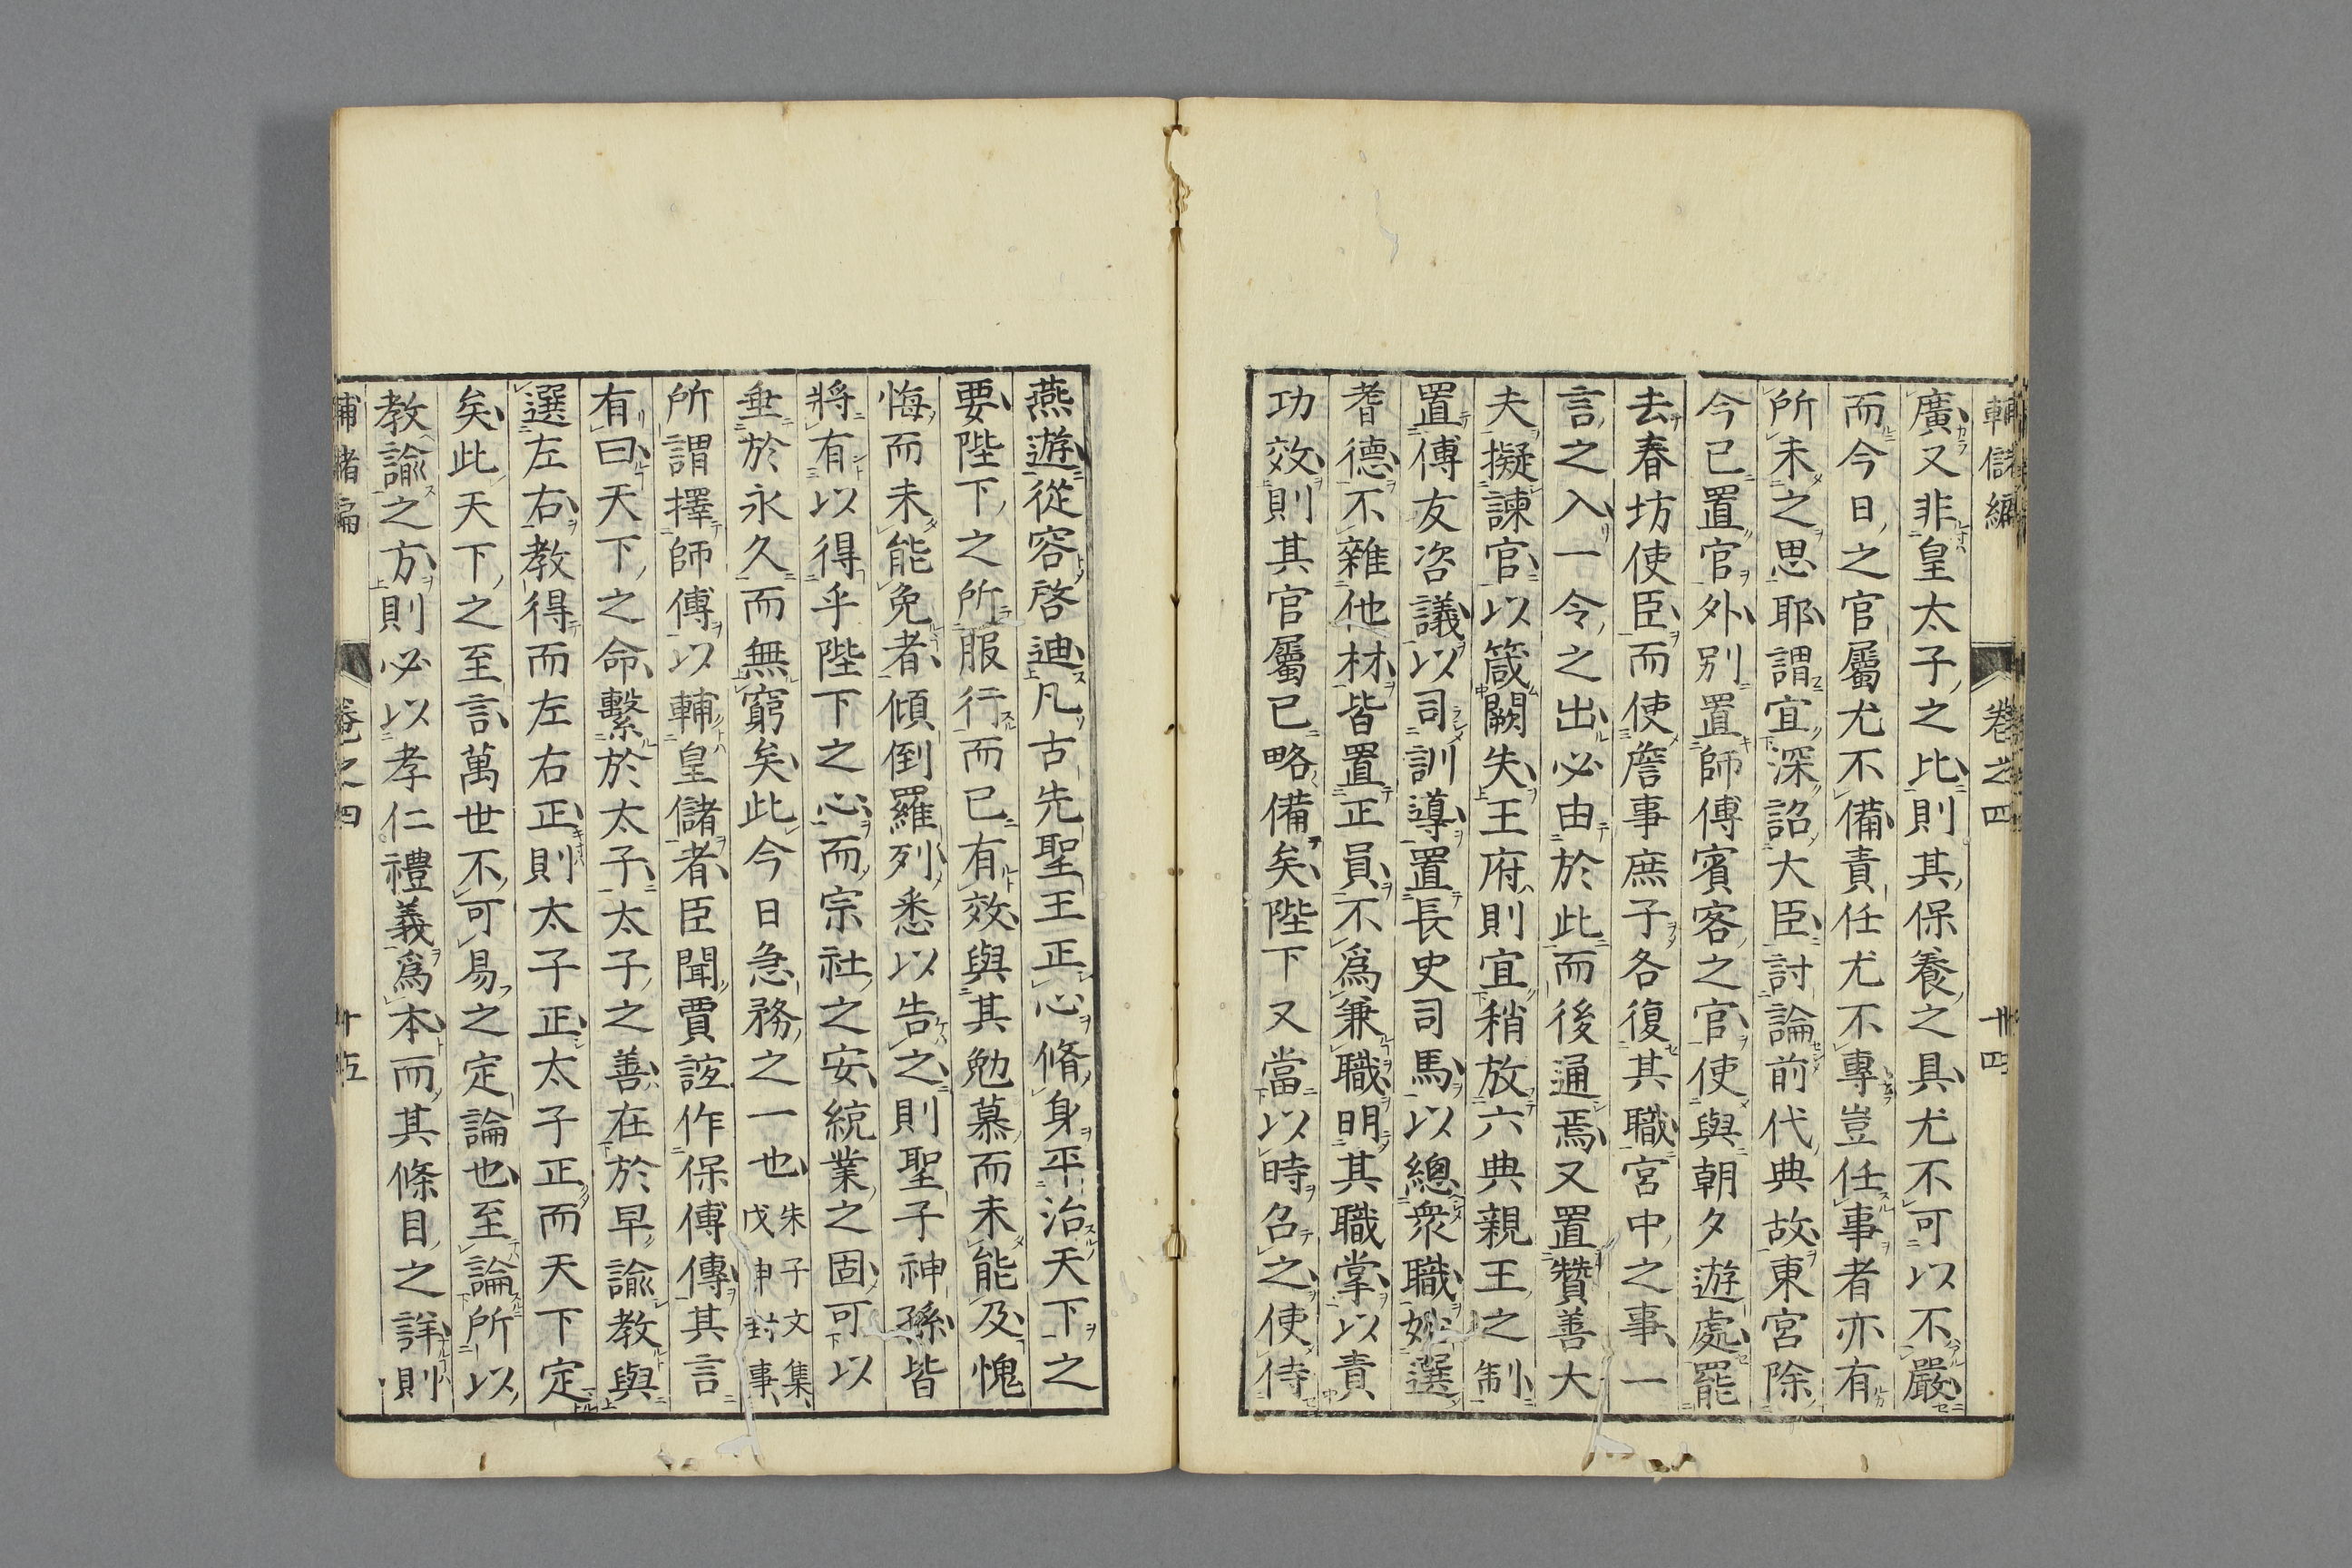 輔儲編 卷之四 卅四
廣又非皇太子之比則其保養之具尤不可以不嚴
而今日之官屬尤不備責任尤不專豈任事者亦有
所未之思耶謂宜深詔大臣討論前代典故東宮除
今已置官外別置師傅賓客之官使與朝夕遊處罷
去春坊使臣而使詹事庶子各復其職宮中之事一
言之入一令之出必由於此而後通焉又置贊善大
夫擬諫官以箴闕失王府則宜稍放六典親王之制
置傅友咨議以司訓導置長史司馬以總衆職妙選
耆德不雜他材皆置正員不爲兼職明其職掌以責
功效則其官屬已略備矣陛下又當以時召之使侍
燕遊從容啓迪凡古先聖王正心脩身平治天下之
要陛下之所服行而已有效與其勉慕而未能及愧
悔而未能免者傾倒羅列悉以告之則聖子神孫皆
將有以得乎陛下之心而宗社之安統業之固可以
垂於永久而無窮矣此今日急務之一也朱子文集戊申封事
所謂擇師傅以輔皇儲者臣聞賈誼作保傅傳其言
有曰天下之命繫於太子太子之善在於早諭教與
選左右教得而左右正則太子正太子正而天下定
矣此天下之至言萬世不可易之定論也至論所以
教諭之方則必以孝仁禮義爲本而其條目之詳則
輔儲編 卷之四 卅五